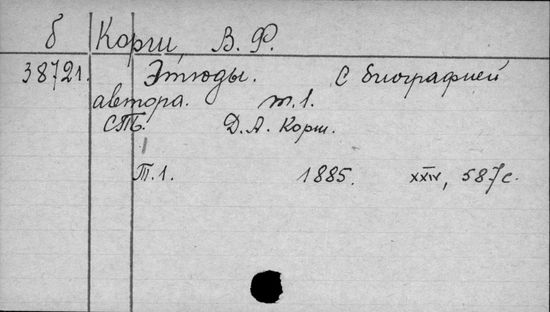 б Корш, В. Ф.
38721. Этюды. С биографией
автора. т. 1.
СПБ. Д. А. Корш.
Т. 1. 1885. XXIV, 587 с.